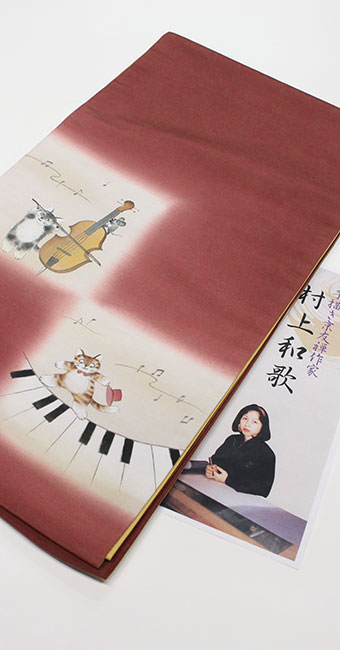 手描き京友禅作家
村上和歌